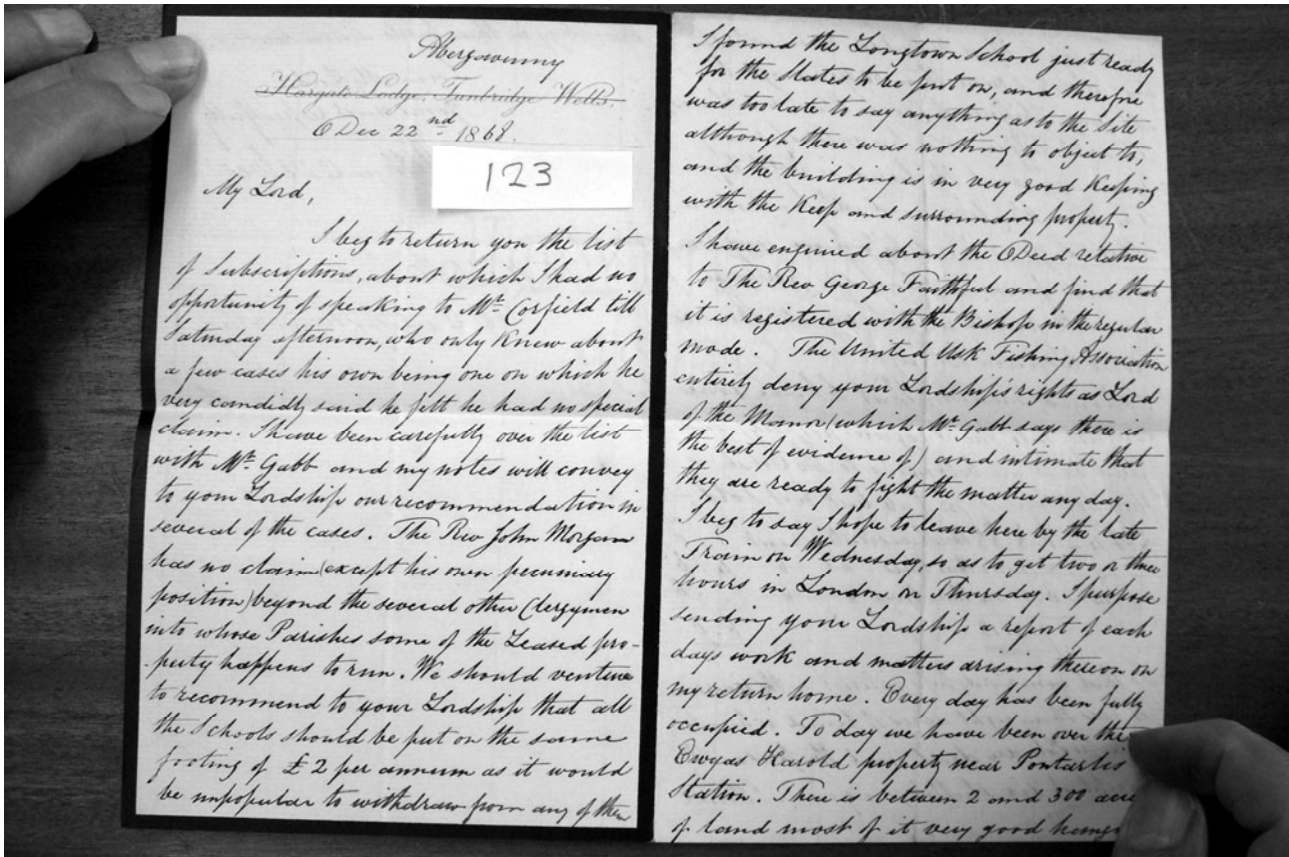 Abergavenny
Hargate Lodge, Tunbridge Wells.
Dec 22nd 1868.
123
My Lord,
I beg to return you the list
of Subscriptions, about which I had no
opportunity of speaking to Mr. Corfield till
Saturday afternoon, who only knew about
a few cases his own being one on which he
very candidly said he felt he had no special
claim. I have been carefully over the list
with Mr. Gabb and my notes will convey
to your Lordship our recommendation in
several of the cases. The Rev John Morgan
has no claim (except his own pecuniary
position) beyond the several other Clergymen
into whose Parishes some of the Leased pro-
-perty happens to run. We should venture
to recommend to your Lordship that all
the Schools should be put on the same
footing of £2 per annum as it would
be unpopular to withdraw from any of them
I found the Longtown School just ready
for the Slates to be put on, and therefore
was too late to say anything as to the Site
although there was nothing to object to,
and the building is in very good Keeping
with the Keep and surrounding property.
I have enquired about the Deed relative
to The Rev George Faithful and find that
it is registered with the Bishop in the regular
mode. The United Usk Fishing Association
entirely deny your Lordship's rights as Lord
of the Manor (which Mr. Gabb says there is
the best of evidence of) and intimate that
they are ready to fight the matter any day.
I beg to say I hope to leave here by the late
Train on Wednesday, so as to get two or three
hours in London on Thursday. I purpose
sending your Lordship a report of each
days work and matters arising thereon on
my return home. Every day has been fully
occupied. To day we have been over the
Ewyas Harold property near Pontrilas
Station. There is between 2 and 300 acres
of land most of it very good